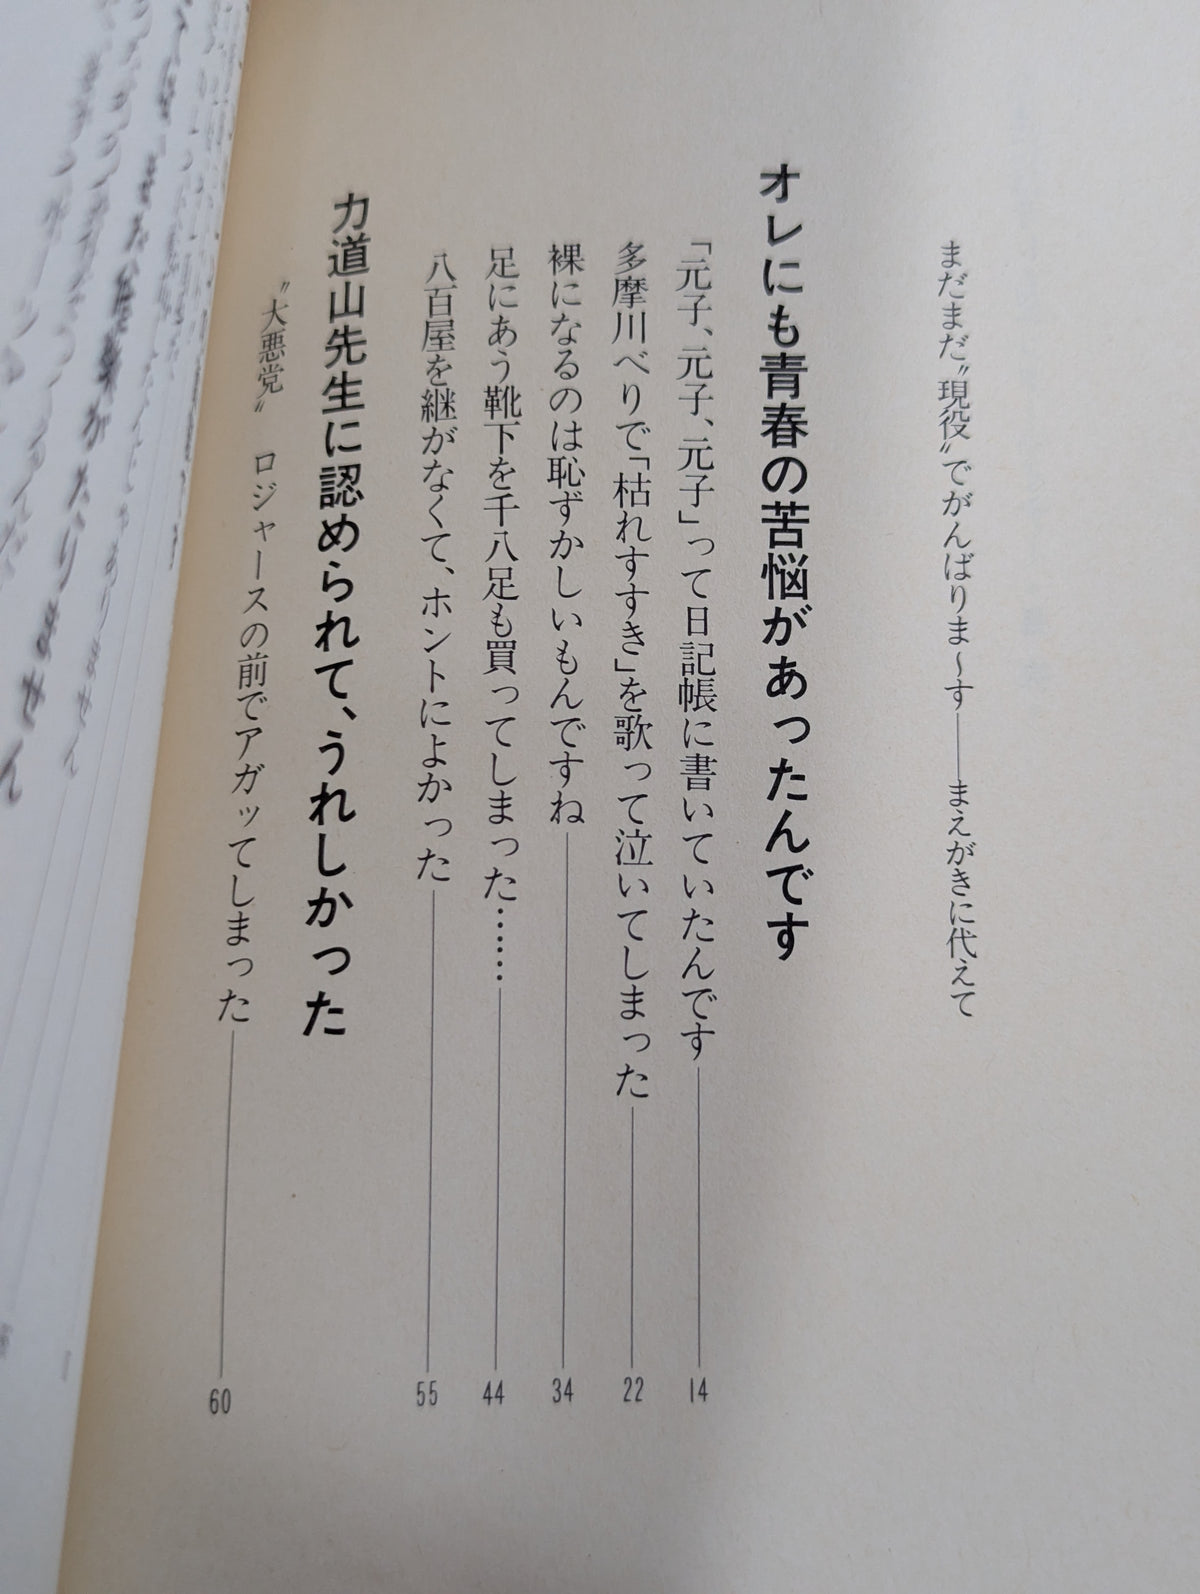 まだまだ〝現役〟でがんばりま〜す――まえがきに代えて
オレにも青春の苦悩があったんです
「元子、元子、元子」って日記帳に書いていたんです――14
多摩川べりで「枯れすすき」を歌って泣いてしまった――22
裸になるのは恥ずかしいもんですね――34
足にあう靴下を千八足も買ってしまった……――44
八百屋を継がなくて、ホントによかった――55
力道山先生に認められて、うれしかった
〝大悪党〟 ロジャースの前でアガッてしまった――60